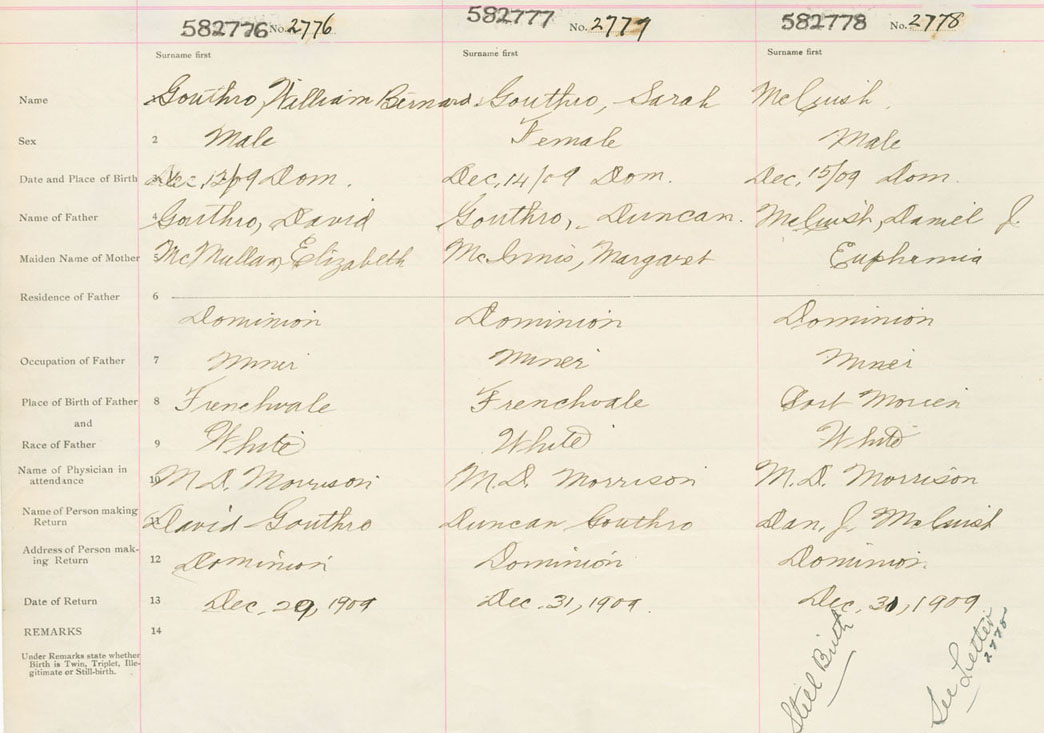 582776 No. 2776 582777 No. 2777 582778 No. 2778
Surname first Surname first Surname first
Name 1 Gouthro, William Bernard. Gouthro, Sarah McCuish.
Sex 2 Male Female Male
Date and Place of Birth 3 Dec. 12/09 Dom. Dec. 14/09 Dom. Dec. 15/09 Dom.
Name of Father 4 Gouthro, David Gouthro, Duncan. McCuish, Daniel J.
Maiden Name of Mother 5 McMullan, Elizabeth McInnis, Margaret Euphemia
Residence of Father 6
Dominion Dominion Dominion
Occupation of Father 7 Miner Miner Miner
Place of Birth of Father 8 Frenchvale Frenchvale Port Morien
and
Race of Father 9 White White White
Name of Physician in
attendance 10 M.D. Morrison M.D. Morrison M.D. Morrison
Name of Person making
Return 11 David Gouthro Duncan Gouthro Dan. J. McCuish
Address of Person mak-
ing Return 12 Dominion Dominion Dominion.
Date of Return 13 Dec. 29, 1909 Dec. 31, 1909. Dec. 31, 1909
REMARKS 14
Under Remarks state whether
Birth is Twin, Triplet, Ille-
gitimate or Still-birth.
Still Birth
See Letter
2778